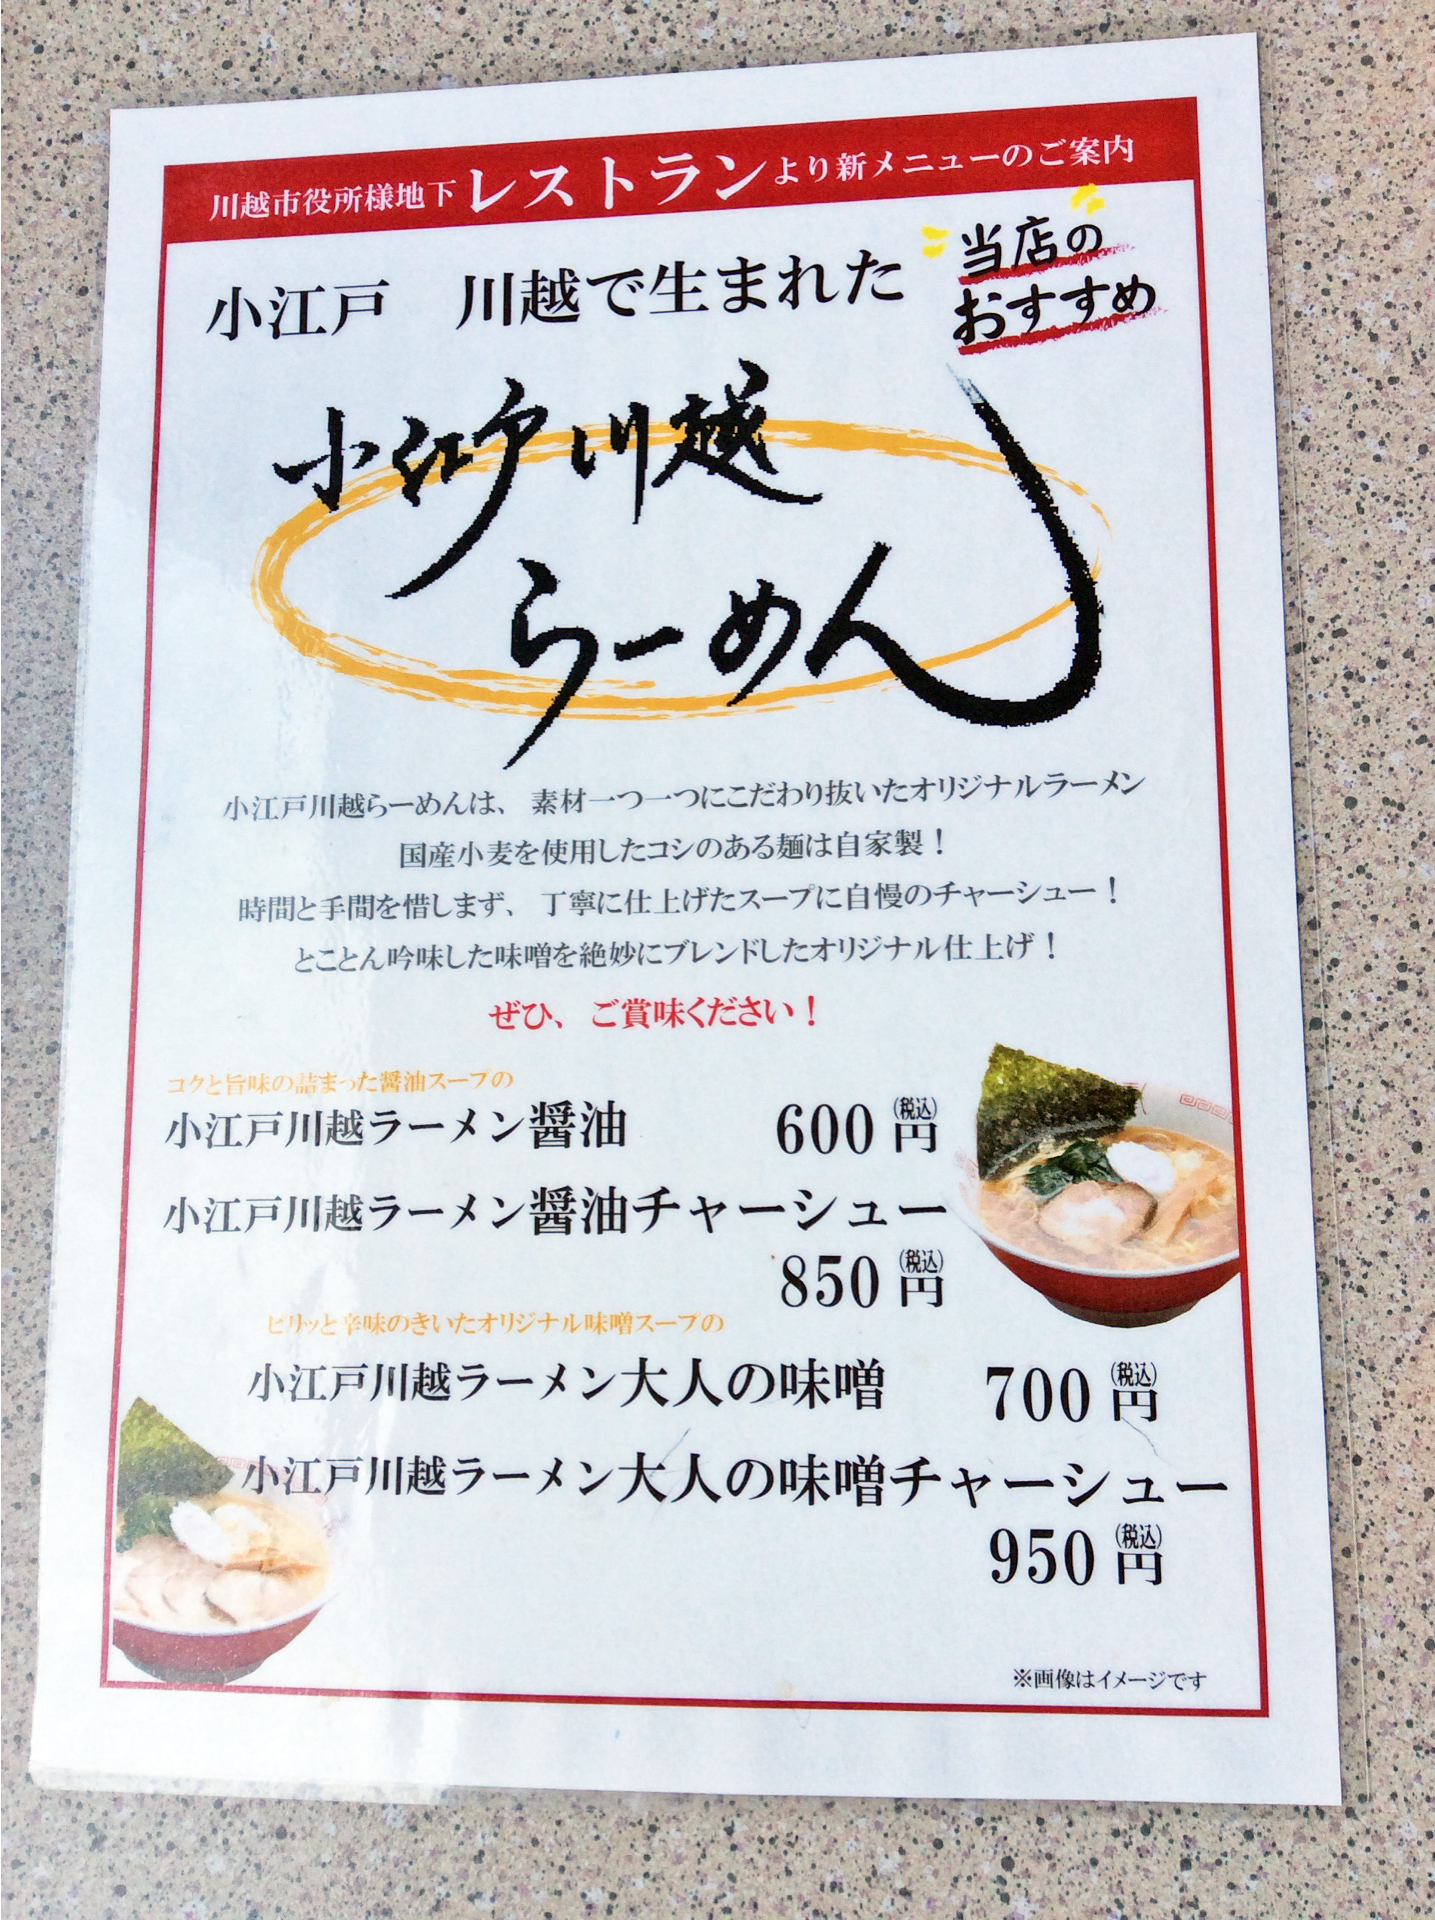 川越市役所様地下レストランより新メニューのご案内
小江戸　川越で生まれた
当店の
おすすめ
小江戸川越
らーめん
小江戸川越らーめんは、素材一つ一つにこだわり抜いたオリジナルラーメン
国産小麦を使用したコシのある麺は自家製！
時間と手間を惜しまず、丁寧に仕上げたスープに自慢のチャーシュー！
とことん吟味した味噌を絶妙にブレンドしたオリジナル仕上げ！
ぜひ、ご賞味ください！
コクと旨味の詰まった醤油スープの
小江戸川越ラーメン醤油　600円(税込)
小江戸川越ラーメン醤油チャーシュー
850円(税込)
ピリッと辛味のきいたオリジナル味噌スープの
小江戸川越ラーメン大人の味噌　700円(税込)
小江戸川越ラーメン大人の味噌チャーシュー
950円(税込)
※画像はイメージです